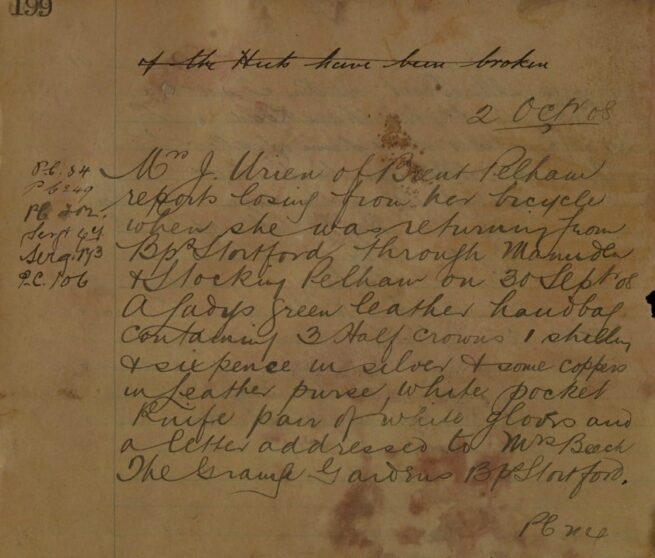 199
of the Huts have been broken
2 Octr 08
P.C. 34
P C 249
PC 202
Sergt 64
Serg. 173
P.C. 106
Mrs J. Urien of Brent Pelham
reports losing from her bicycle
when she was returning from
Bps Stortford through Manuden
& Stocking Pelham on 30 Septr 08
A Ladys green leather handbag
containing 3 Half crowns 1 shilling
& sixpence in silver & some coppers
in Leather purse white pocket
Knife pair of white gloves and
a letter addressed to Mrs Beech
The Grange Gardens Bps Stortford.
PC